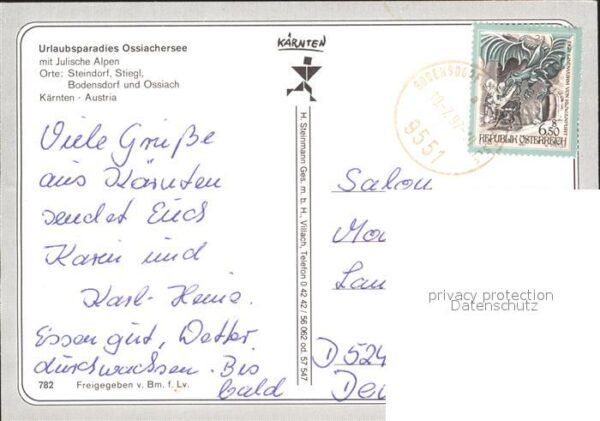 Urlaubsparadies Ossiachersee
mit Julische Alpen
Orte: Steindorf, Stiegl,
Bodensdorf und Ossiach
Kärnten - Austria
Viele Grüße
aus Kärnten
sendet Euch
Karin und
Karl-Heinz.
Essen gut, Wetter
durchwachsen. Bis
bald
782 Freigegeben v. Bm. f. Lv.
KÄRNTEN
H. Steinmann Ges. m. b. H., Villach, Telefon 0 42 42 / 56 062 od. 57 547
9551
6.50
REPUBLIK ÖSTERREICH
Salon
privacy protection
Datenschutz
D 524